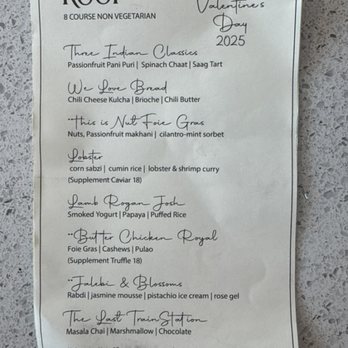 8 COURSE NON VEGETARIAN
Valentine's
Day
2025
Three Indian Classics
Passionfruit Pani Puri | Spinach Chaat | Saag Tart
We Love Bread
Chili Cheese Kulcha | Brioche | Chili Butter
**This is Nut Foie Gras
Nuts, Passionfruit makhani | cilantro-mint sorbet
Lobster
corn sabzi | cumin rice | lobster & shrimp curry
(Supplement Caviar 18)
Lamb Rogan Josh
Smoked Yogurt | Papaya | Puffed Rice
**Butter Chicken Royal
Foie Gras | Cashews | Pulao
(Supplement Truffle 18)
**Jalebi & Blossoms
Rabdi | jasmine mousse | pistachio ice cream | rose gel
The Last Train Station
Masala Chai | Marshmallow | Chocolate